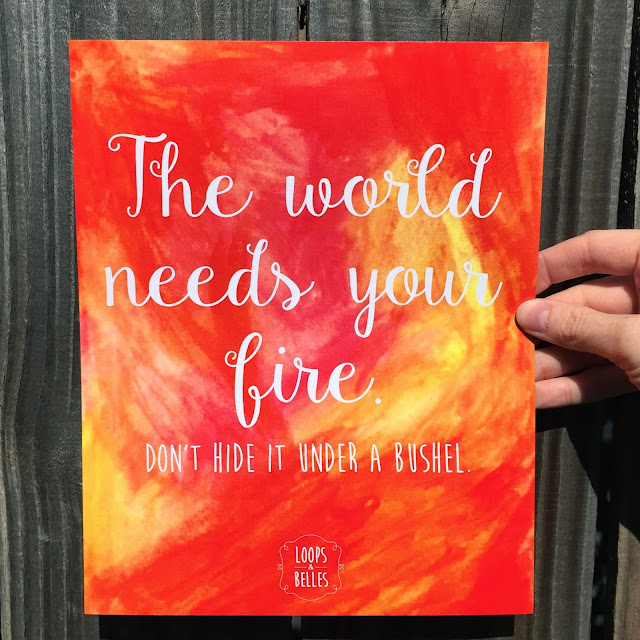 The world
needs your
fire.
DON'T HIDE IT UNDER A BUSHEL.
LOOPS
&
BELLES